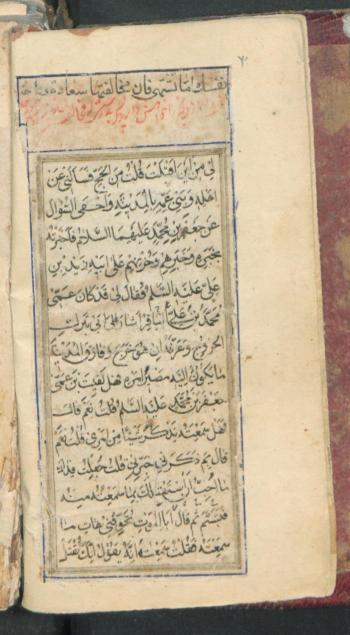 نفسك اما تشتهى فان فى مخالفتها سعادة
لى من اين اقبلت قلت من الحج فسالنى عن
اهله وبنى عمه بالمدينة واحفى السؤال
عن جعفر بن محمد عليهما السلام فاخبرته
بخبره وخبرهم وحزنهم على ابيه زيد بن
على عليه السلام فقال لى قد كان عمى
محمد بن على الباقر اشار على ابى بترك
الخروج وعرفه ان هو خرج وفارق المدينة
ما يكون اليه مصير امره فهل لقيت بن عمى
جعفر بن محمد عليه السلام قلت نعم قال
فهل سمعته يذكر شيئا من امرى قلت نعم
قال بم ذكرنى خبرنى قلت جعلت فداك
ما احب ان استقبلك بما سمعته منه
فقال ابالموت تخوفنى هات ما
سمعته فقلت سمعته يقول انك تقتل